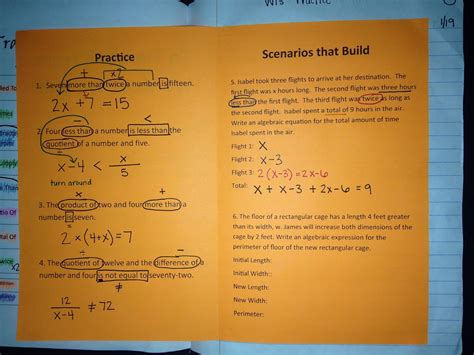 W15 Practice
1/19
Practice
+ x2
1. Seven more than twice a number is fifteen.
2x + 7 = 15
−
2. Four less than a number is less than the
quotient of a number and five.
÷
x − 4 < x/5
turn around
× +
3. The product of two and four more than a
number is seven.
2 × (4+x) = 7
÷ −
4. The quotient of twelve and the difference of a
number and four is not equal to seventy-two.
≠
12/x−4 ≠ 72
Scenarios that Build
5. Isabel took three flights to arrive at her destination. The
first flight was x hours long. The second flight was three hours
less than the first flight. The third flight was twice as long as
the second flight. Isabel spent a total of 9 hours in the air.
Write an algebraic equation for the total amount of time
Isabel spent in the air.
Flight 1: X
Flight 2: x−3
Flight 3: 2(x−3) = 2x−6
Total: x + x−3 + 2x−6 = 9
6. The floor of a rectangular cage has a length 4 feet greater
than its width, w. James will increase both dimensions of the
cage by 2 feet. Write an algebraic expression for the
perimeter of floor of the new rectangular cage.
Initial Length:
Initial Width::
New Length:
New Width:
Perimeter: